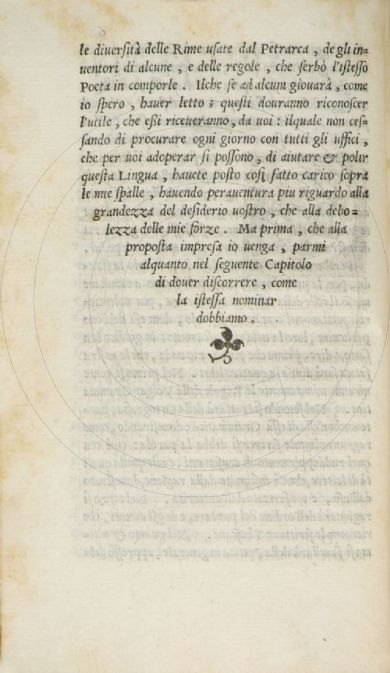 le diuersità delle Rime usate dal Petrarca, de gli in=
uentori di alcune, e delle regole, che serbò l'istesso
Poeta in comporle. Ilche se ad alcuni giouarà, come
io spero, hauer letto; questi douranno riconoscer
l'utile, che essi riceueranno, da uoi: ilquale non ces=
sando di procurare ogni giorno con tutti gli uffici,
che per uoi adoperar si possono, di aiutare & polir
questa Lingua, hauete posto cosi fatto carico sopra
le mie spalle, hauendo perauentura piu riguardo alla
grandezza del desiderio uostro, che alla debo=
lezza delle mie forze. Ma prima, che alla
proposta impresa io uenga, parmi
alquanto nel seguente Capitolo
di douer discorrere, come
la istessa nominar
dobbiamo.